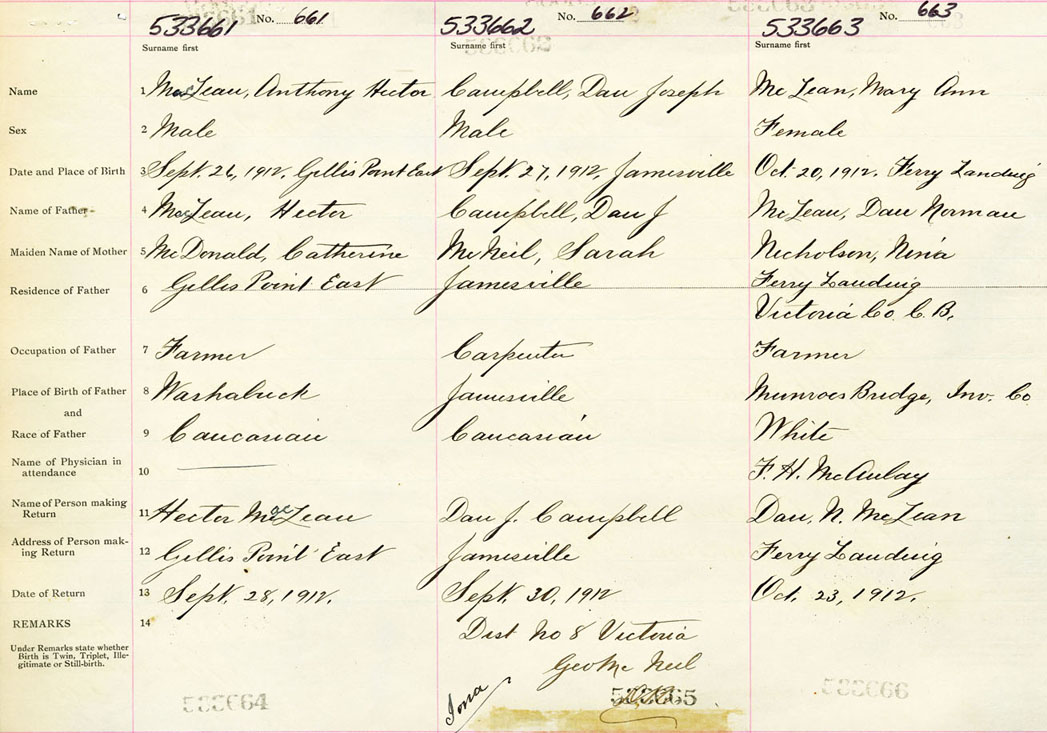 533661 No. 661 533662 No. 662 533663 No. 663
Surname first Surname first Surname first
Name 1 MacLean, Anthony Hector Campbell, Dan Joseph Mc Lean, Mary Ann
Sex 2 Male Male Female
Date and Place of Birth 3 Sept. 26, 1912. Gillis Point East Sept. 27, 1912 Jamesville Oct. 20, 1912. Ferry Landing
Name of Father 4 MacLean, Hector Campbell, Dan J McLean, Dan Norman
Maiden Name of Mother 5 McDonald, Catherine McNeil, Sarah Nicholson, Nina
Residence of Father 6 Gillis Point East Jamesville Ferry Landing
Victoria Co. C. B.
Occupation of Father 7 Farmer Carpenter Farmer
Place of Birth of Father 8 Washabuck Jamesville Munroes Bridge, Inv. Co
and
Race of Father 9 Caucasian Caucasian White
Name of Physician in
attendance 10 F. H. McAulay
Name of Person making
Return 11 Hector MacLean Dan J. Campbell Dan. N. McLean
Address of Person mak-
ing Return 12 Gillis Point East Jamesville Ferry Landing
Date of Return 13 Sept. 28, 1912. Sept. 30, 1912 Oct. 23, 1912.
REMARKS 14 Dist No 8 Victoria
Under Remarks state whether
Birth is Twin, Triplet, Ille-
gitimate or Still-birth.
Geo Mc Neil
Iona
533664 533665 533666